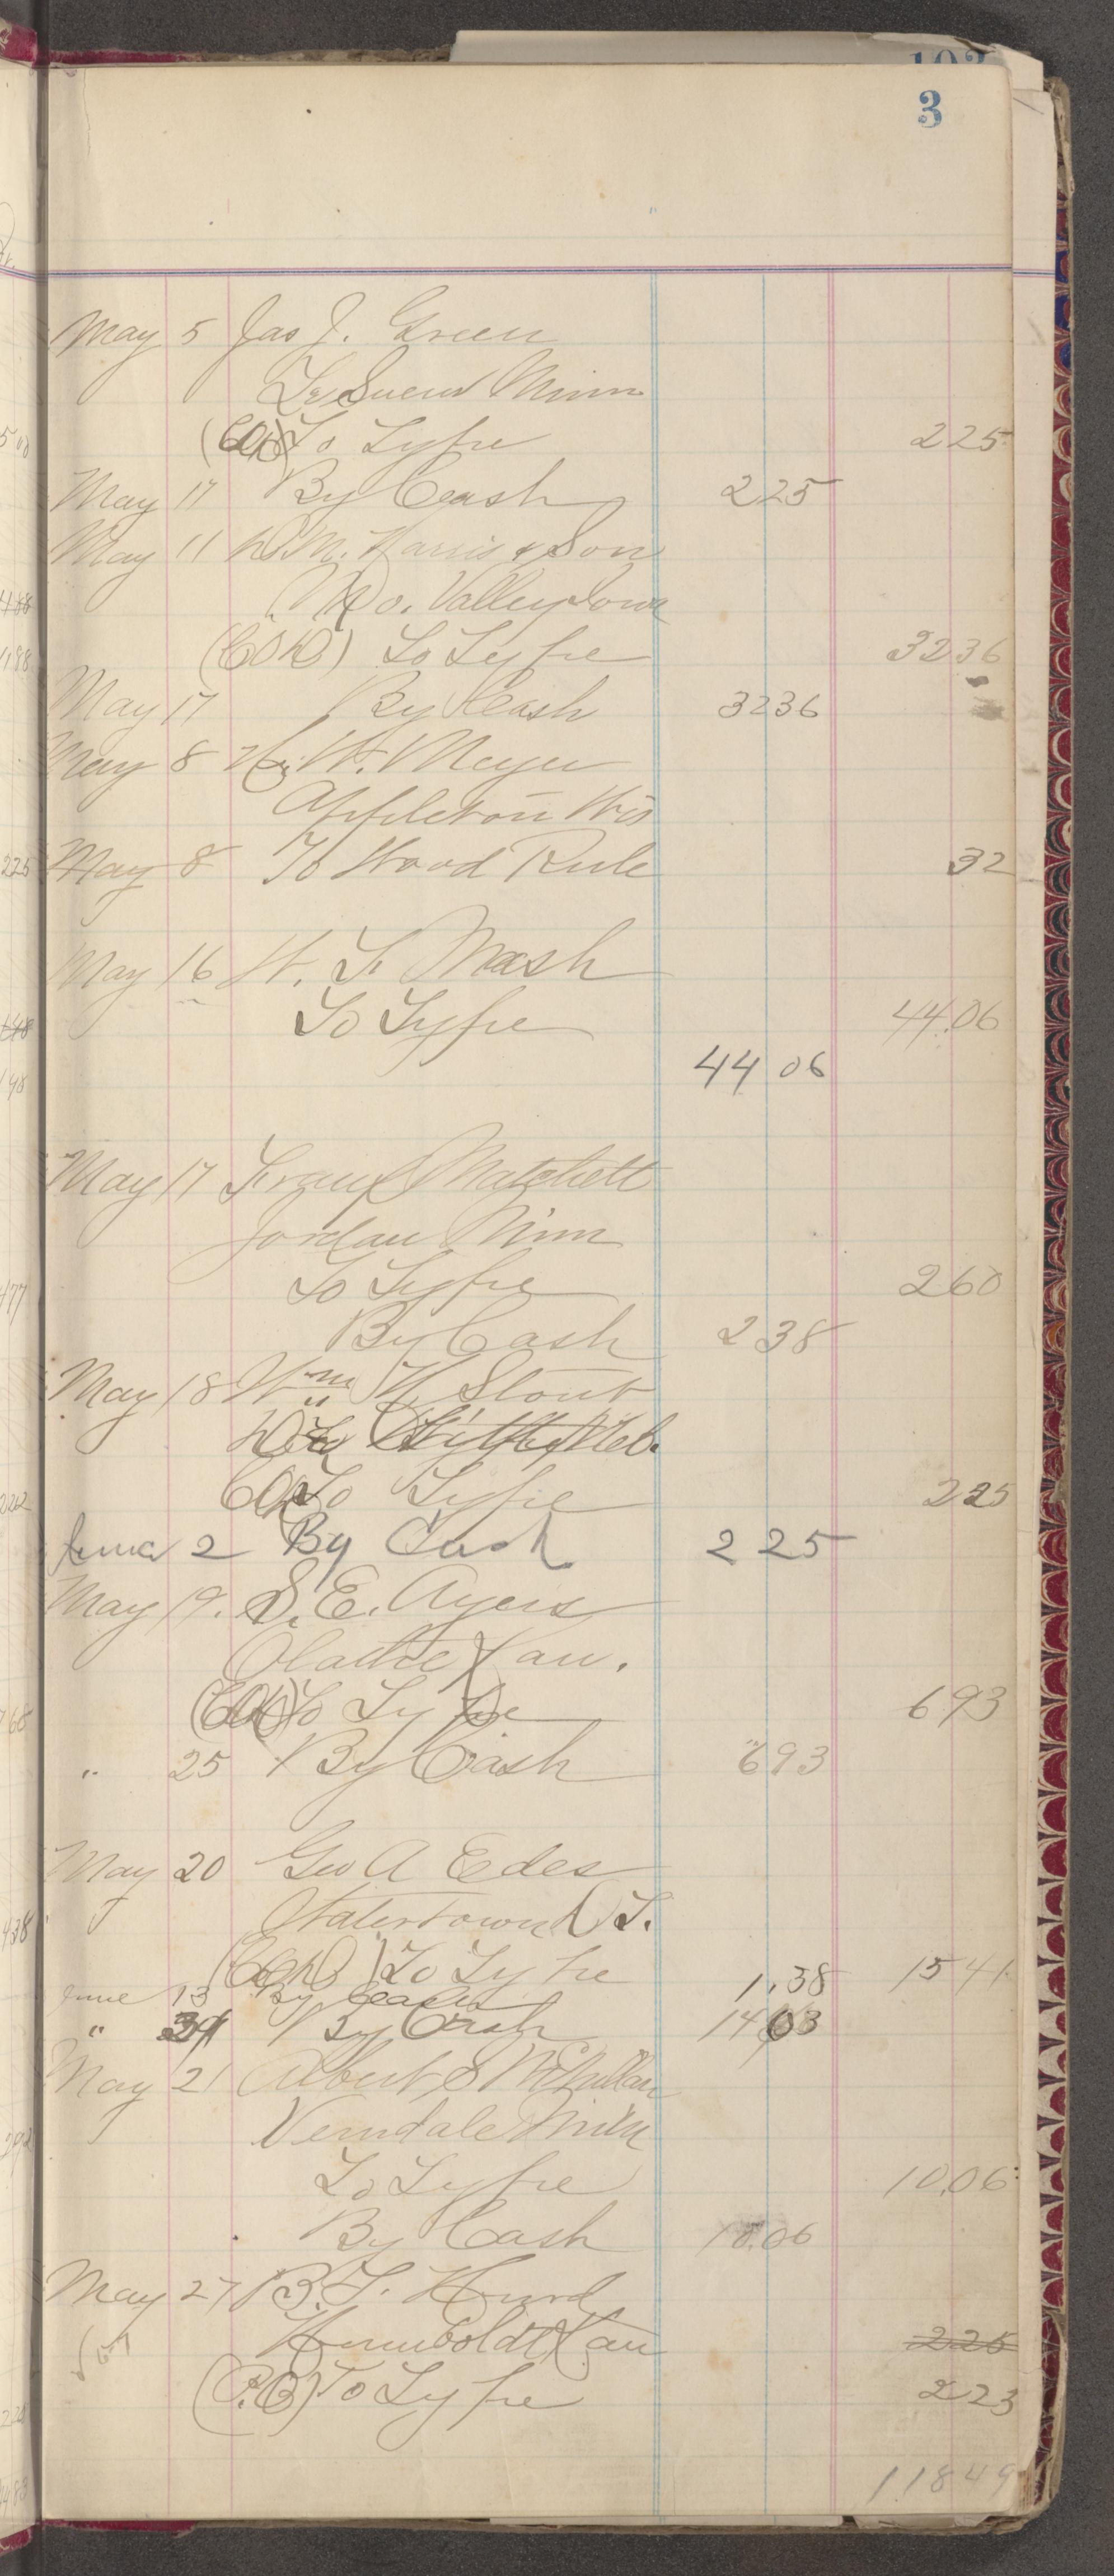 3
May 5 Jas J. Green
Le Sueur Minn
(COD) To Type 225
May 17 By Cash 225
May 11 D. M. Harris & Son
Mo. Valley Iowa
(COD) To Type 3236
May 17 By Cash 3236
May 8 W. Meyer
Appleton Wis
May 8 To Wood Rule 32
May 16 W. F. Mash
To Type 44.06
44 06
May 17 Frank Matchett
Jordan Minn
To Type 260
By Cash 238
May 18 Wm H. Stout
Neb.
COD To Type 225
June 2 By Cash 225
May 19. S. E. Ayers
Olathe Kan.
(COD) To Type 693
" 25 By Cash 693
May 20 Geo A Edes
Watertown D. T.
(COD) To Type 1541
June 13 By Cash 1.38
" By Cash 1403
May 21 Albert S McMillan
Verndale Minn
To Type 10.06
By Cash 10.06
May 27 B. F. Hurd
Humboldt Kan 225
(P.O.) To Type 223
11849